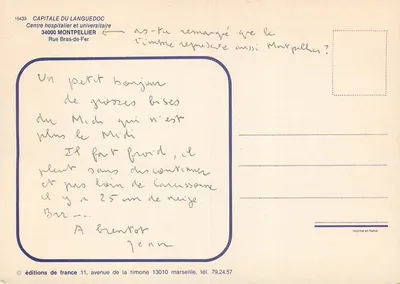 16439 CAPITALE DU LANGUEDOC
Centre hospitalier et universitaire
34000 MONTPELLIER
Rue Bras-de-Fer
as-tu remarqué que le
timbre représente aussi Montpellier ?
Un petit bonjour
de grosses bises
du Midi qui n'est
plus le Midi
Il fait froid, il
pleut sans discontinuer
et pas loin de Carcassonne
il y a 25 cm de neige
Brr...
A bientot
imprimé en France
© éditions de france 11, avenue de la timone 13010 marseille, tél. 79.24.57